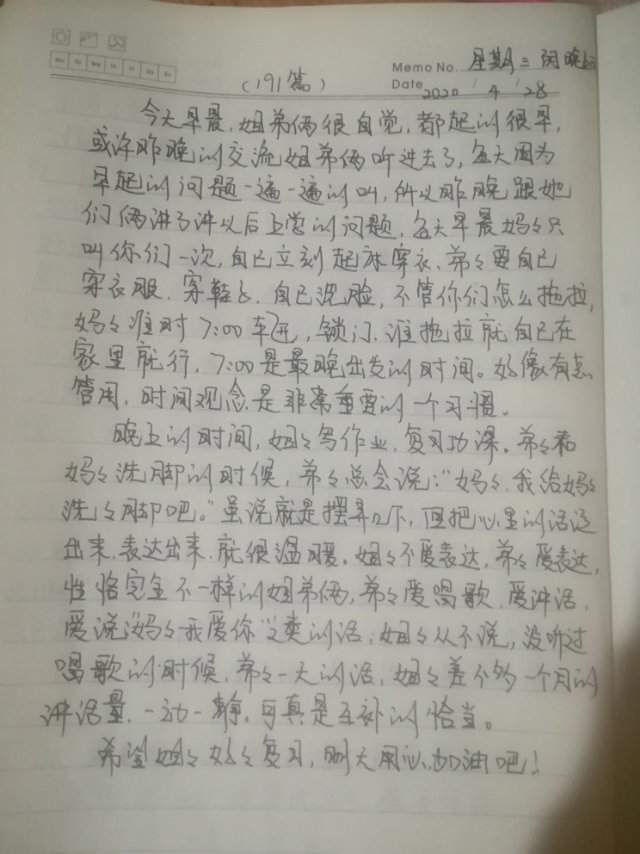 Mo Tu We Th Fr Sa Su
Memo No. 星期二 阴 晚上
(191篇)
Date 2020 / 4 / 28
今天早晨,姐弟俩很自觉,都起的很早,
或许昨晚的交流姐弟俩听进去了,每天因为
早起的问题一遍一遍的叫,所以昨晚跟她
们俩讲了讲以后上学的问题,每天早晨妈々只
叫你们一次,自己立刻起床穿衣,弟々要自己
穿衣服,穿鞋子,自己洗脸,不管你们怎么拖拉,
妈々准时7:00车开,锁门,谁拖拉就自己在
家里就行,7:00是最晚出发的时间。好像有点
管用,时间观念是非常重要的一个习惯。
晚上的时间,姐々写作业,复习功课。弟々和
妈々洗脚的时候,弟々总会说:“妈々,我给妈々
洗々脚吧。”虽说就是摆弄几下,但把心里的话说
出来,表达出来,就很温暖。姐々不爱表达,弟々爱表达,
性恪完全不一样的姐弟俩,弟々爱唱歌,爱讲话,
爱说“妈々我爱你”之类的话,姐々从不说,没听过
唱歌的时候,弟々一天的话,姐々差不多一个月的
讲话量,一动一静,可真是互补的恰当。
希望姐々好々复习,明天用心,加油吧!